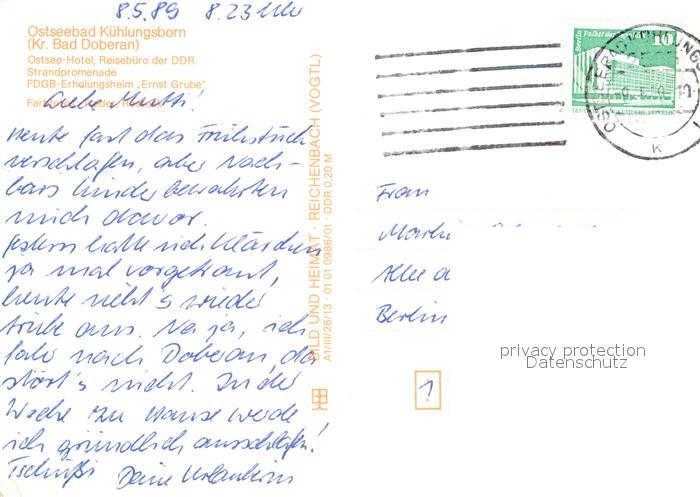 8.5.89 8.23 Uhr
Ostseebad Kühlungsborn
(Kr. Bad Doberan)
Ostsee-Hotel, Reisebüro der DDR
Strandpromenade
FDGB-Erholungsheim „Ernst Grube"
Liebe Mutti!
Heute fast das Frühstück
verschlafen, aber Nach-
bars Kinder bewahrten
mich davor.
Gestern hatte sich Klärchen
ja mal vorgetraut,
heute sieht's wieder
trübe aus. Na ja, ich
fahr nach Doberan, da
stört's nicht. In der
Woche zu Hause werde
ich gründlich ausschlafen!
Tschüßi Deine Urlauberin
BILD UND HEIMAT · REICHENBACH (VOGTL)
A1/III/26/13 · 01 01 0986/01 · DDR 0,20 M
Berlin Palast der
10
K
Frau
Allee
Berlin
privacy protection
Datenschutz
1